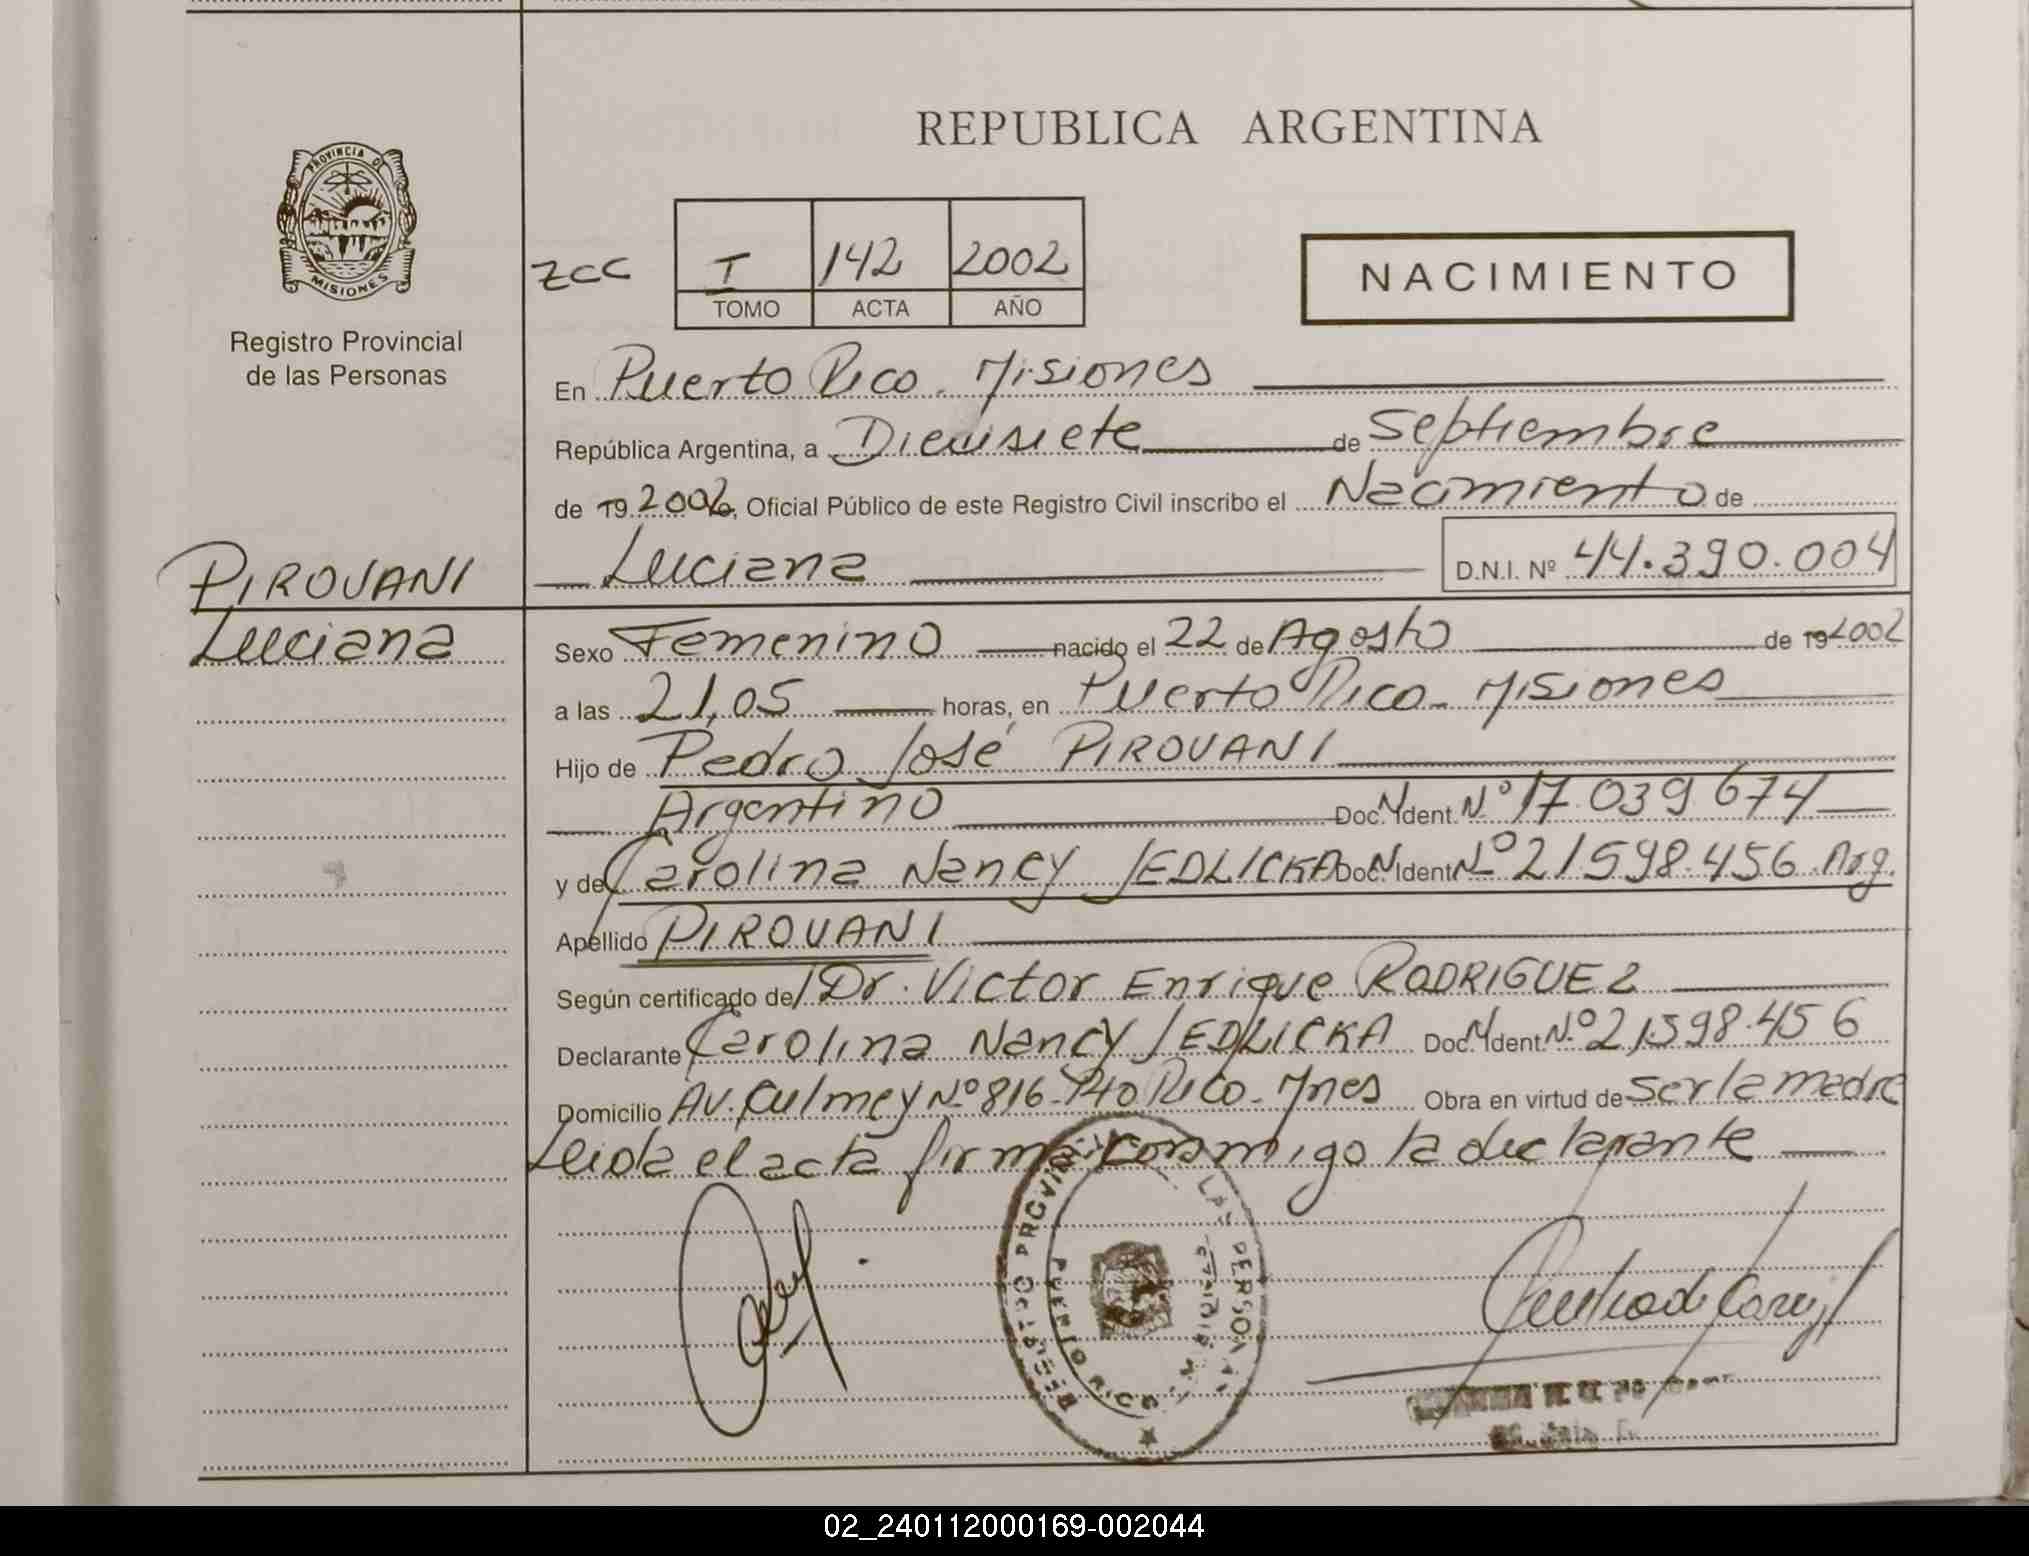 REPUBLICA ARGENTINA
PROVINCIA DE
MISIONES
Registro Provincial
de las Personas
zcc
I 142 2002
TOMO ACTA AÑO
NACIMIENTO
En Puerto Rico. Misiones
República Argentina, a Diecisiete de Septiembre
de 19 2002, Oficial Público de este Registro Civil inscribo el Nacimiento de
Luciana D.N.I. Nº 44.390.004
PIROVANI
Luciana
Sexo Femenino nacido el 22 de Agosto de 19 2002
a las 21,05 horas, en Puerto Rico. Misiones
Hijo de Pedro José PIROVANI
Argentino Doc. N Ident. Nº 17.039.674
y de Carolina Nancy JEDLICKA Doc. N Ident Nº 21.598.456. Arg.
Apellido PIROVANI
Según certificado de/ Dr. Victor Enrique RODRIGUEZ
Declarante Carolina Nancy JEDLICKA Doc. N Ident. Nº 21.598.456
Domicilio Av. Culmey Nº 816-Pto Rico. Mnes Obra en virtud de ser la madre
Leida el acta firma conmigo la declarante
REGISTRO PROVINCIAL DE LAS PERSONAS
PUERTO RICO
02_240112000169-002044